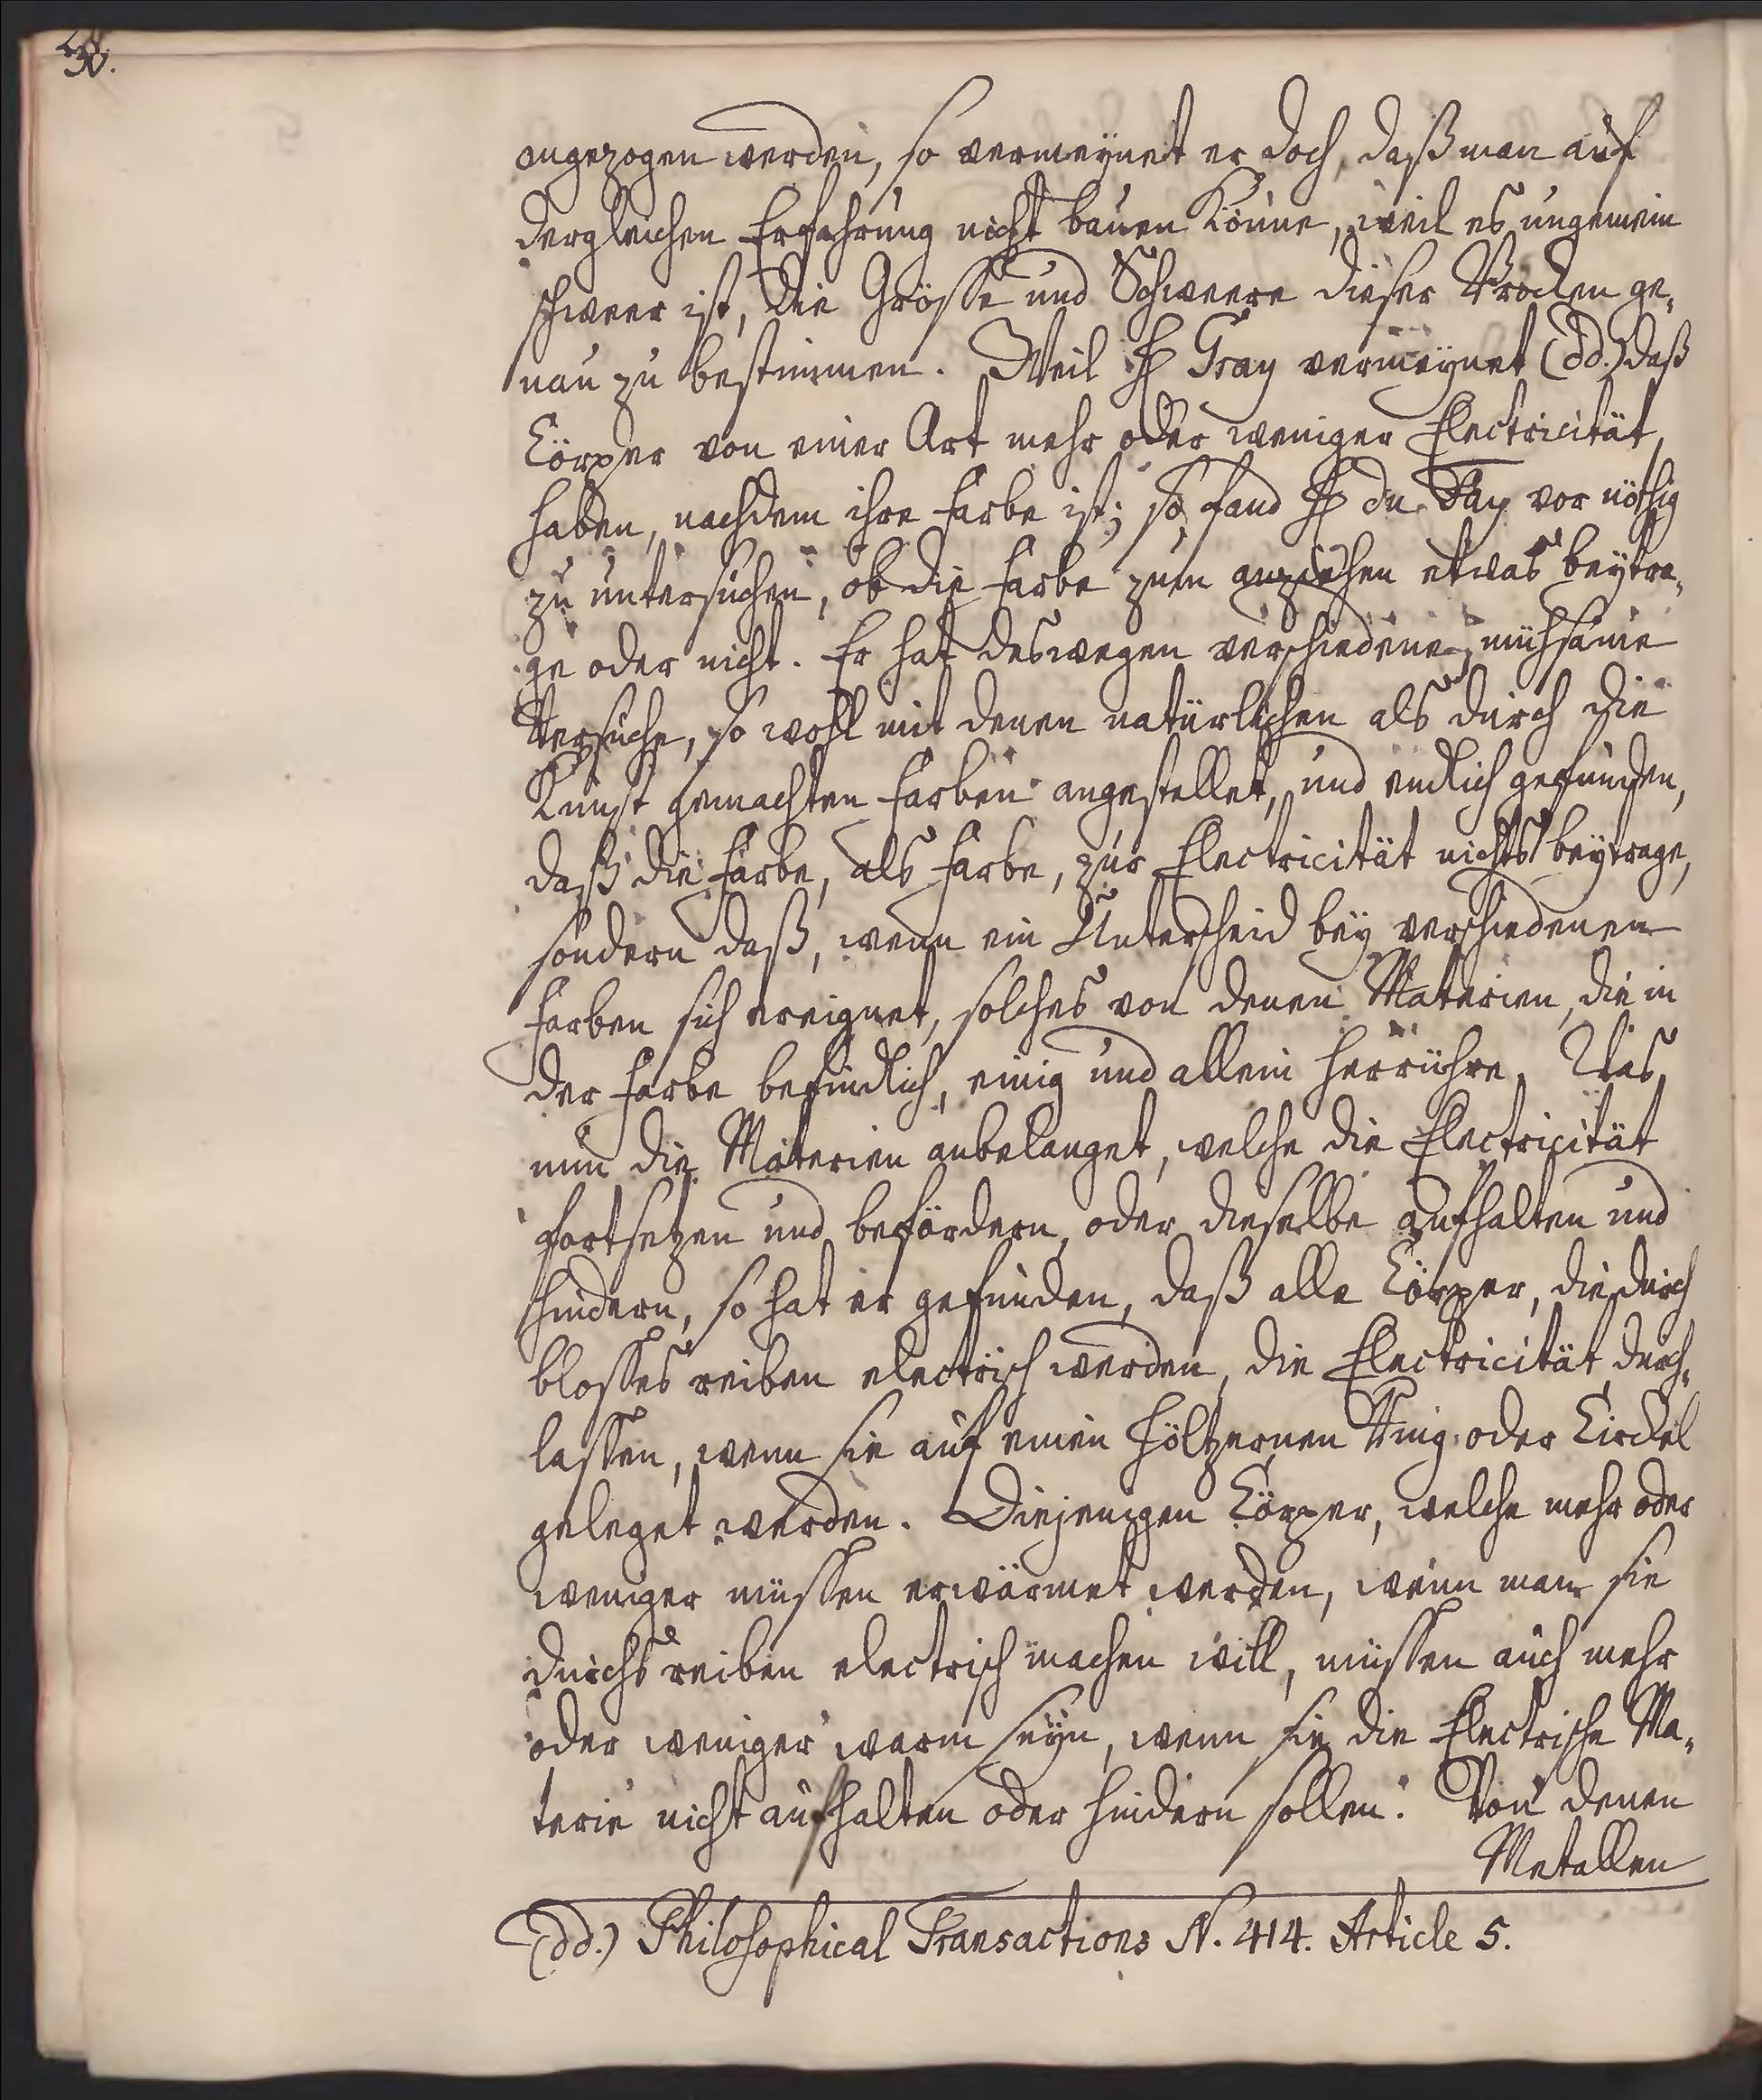 30.
angezogen werden, so vermeynet er doch, daß man auf
dergleichen Erfahrung nicht bauen könne, weil es ungemein
schweer ist, die Grösse und Schweere dieser Brocken ge-
nau zu bestimmen. Weil H Gray vermeynet (dd.) daß
Cörper von einer Art mehr oder weniger Electricität,
haben, nachdem ihre Farbe ist; so fand H du Fay vor nöthig
zu untersuchen, ob die Farbe zum anziehen etwas beytra-
ge oder nicht. Er hat deswegen verschiedene mühsame
Versuche, so wohl mit denen natürlichen als durch die
Kunst gemachten Farben angestellet, und endlich gefunden,
daß die Farbe, als Farbe, zur Electricität nichts beytrage,
sondern daß, wenn ein Unterscheid bey verschiedenen
Farben sich ereignet, solches von denen Materien, die in
der Farbe befindlich, einig und allein herrühre. Was
nun die Materien anbelanget, welche die Electricität
fortsetzen und befördern, oder dieselbe aufhalten und
hindern, so hat er gefunden, daß alle Cörper, die durch
blosses reiben electrisch werden, die Electricität durch-
lassen, wenn sie auf einen höltzernen Ring oder Circkel
geleget werden. Diejenigen Cörper, welche mehr oder
weniger müssen erwärmet werden, wenn man sie
durchs reiben electrisch machen will, müssen auch mehr
oder weniger warm seyn, wenn sie die Electrische Ma-
terie nicht aufhalten oder hindern sollen. Von denen
Metallen
(dd.) Philosophical Transactions N. 414. Article 5.